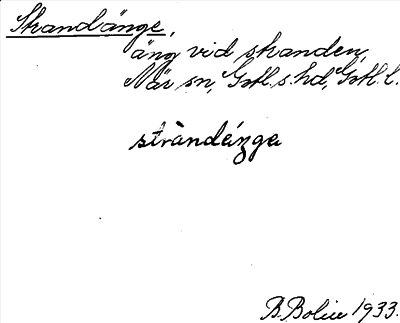 Strandänge,
äng vid stranden,
När sn, Gotl. s. hd, Gotl. l.
stràndèŋgə
B. Bolin 1933.